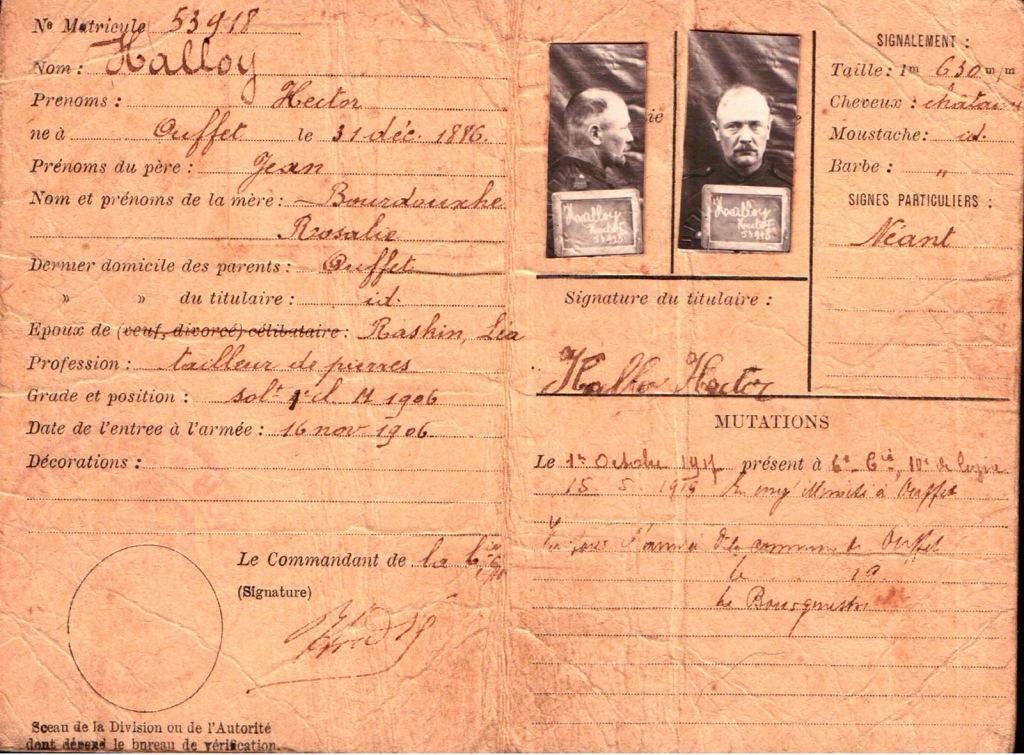 Nº Matricule 53918
Nom : Halloy
Prenoms : Hector
ne à Ouffet le 31 déc. 1886.
Prénoms du père : Jean
Nom et prénoms de la mère : Bourdouxhe
Rosalie
Dernier domicile des parents : Ouffet
» » du titulaire : id.
Epoux de (veuf, divorcé) célibataire : Raskin, Léa
Profession : tailleur de pierres
Grade et position : solt 1e cl. M 1906
Date de l'entree à l'armée : 16 nov 1906
Décorations :
Le Commandant de la 6e Cie
(Signature)
Sceau de la Division ou de l'Autorité
dont dépend le bureau de vérification.
Halloy
Hector
53918
Halloy
Hector
53918
Signature du titulaire :
Halloy Hector
SIGNALEMENT :
Taille : 1m 630 m/m
Cheveux : chatains
Moustache : id.
Barbe : "
SIGNES PARTICULIERS :
Néant
MUTATIONS
Le 1r Octobre 1917 présent à 6e Cie, 10e de ligne
15 5 1919 En congé illimité à Ouffet
commune de Ouffet
le 19
Le Bourgmestre